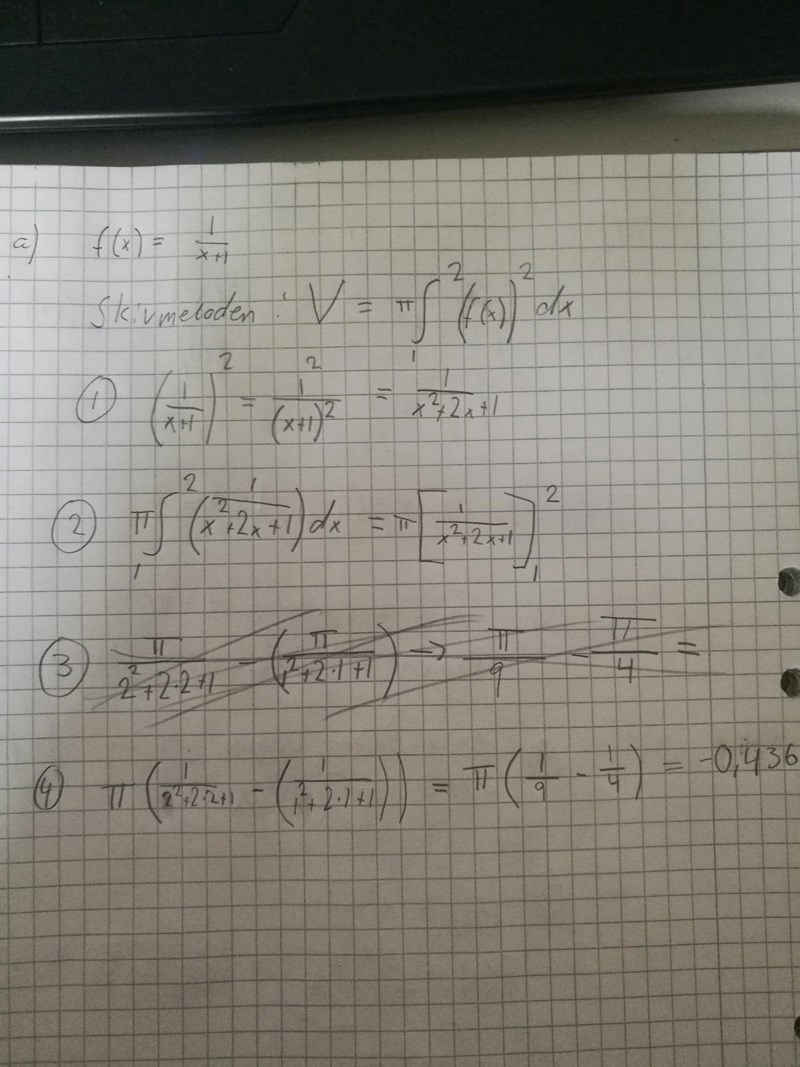 a) f(x) = 1/(x+1)
Skivmetoden : V = π∫₁² (f(x))² dx
① (1/(x+1))² = 1²/(x+1)² = 1/(x²+2x+1)
② π∫₁² (1/(x²+2x+1)) dx = π[1/(x²+2x+1)]₁²
③ π/(2²+2·2+1) - (π/(1²+2·1+1)) → π/9 - π/4 =
④ π(1/(2²+2·2+1) - (1/(1²+2·1+1))) = π(1/9 - 1/4) = -0,436